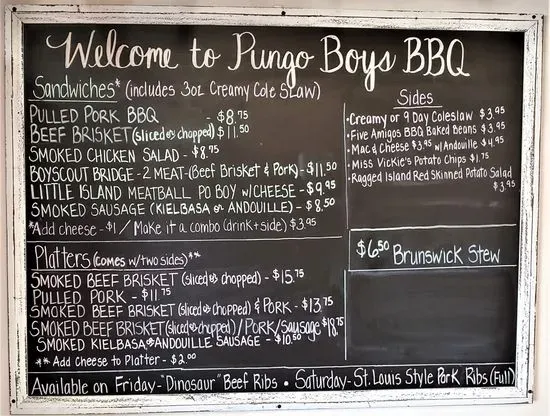 Welcome to Pungo Boys BBQ
Sandwiches* (includes 3oz Creamy Cole Slaw)
PULLED PORK BBQ - $8.75
BEEF BRISKET (sliced or chopped) $11.50
SMOKED CHICKEN SALAD - $8.75
BOYSCOUT BRIDGE - 2 MEAT - (Beef Brisket & Pork) - $11.50
LITTLE ISLAND MEATBALL PO BOY W/CHEESE - $9.95
SMOKED SAUSAGE (KIELBASA or ANDOUILLE) - $8.50
*Add cheese - $1 / Make it a combo (drink + side) $3.95
Sides
•Creamy or 9 Day Coleslaw $3.95
•Five Amigos BBQ Baked Beans $3.95
•Mac & Cheese $3.95 w/Andouille $4.95
•Miss Vickie's Potato Chips $1.75
•Ragged Island Red Skinned Potato Salad
$3.95
$6.50 Brunswick Stew
Platters (comes w/two sides)**
SMOKED BEEF BRISKET (sliced or chopped) - $15.75
PULLED PORK - $11.75
SMOKED BEEF BRISKET (sliced or chopped) & PORK - $13.75
SMOKED BEEF BRISKET (sliced or chopped) / PORK / Sausage $18.75
SMOKED KIELBASA or ANDOUILLE SAUSAGE - $10.50
** Add Cheese to Platter - $2.00
Available on Friday - "Dinosaur" Beef Ribs • Saturday - St. Louis Style Pork Ribs (Full)